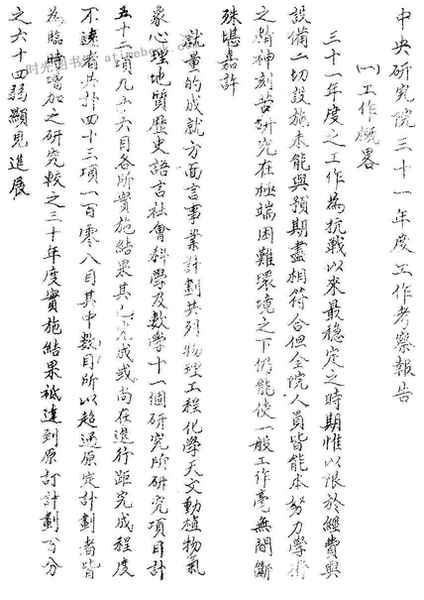 中央研究院三十一年度工作考察報告
(一)工作概畧
三十一年度之工作為抗戰以來最穩定之時期惟以限於經費與
設備一切設施未能與預期盡相符合但全院人員皆能本努力學術
之精神刻苦研究在極端困難環境之下仍能使一般工作毫無間斷
殊堪嘉許
就量的成就方面言事業計劃共列物理工程化學天文動植物氣
象心理地質歷史語言社會科學及數學十一個研究所研究項目計
五十二項九十六目各所實施結果其已完成或尚在進行距完成程度
不遠者共計四十三項一百零八目其中數目所以超過原定計劃者皆
為臨時增加之研究較之三十年度實施結果祗達到原訂計劃百分
之六十四弱顯見進展